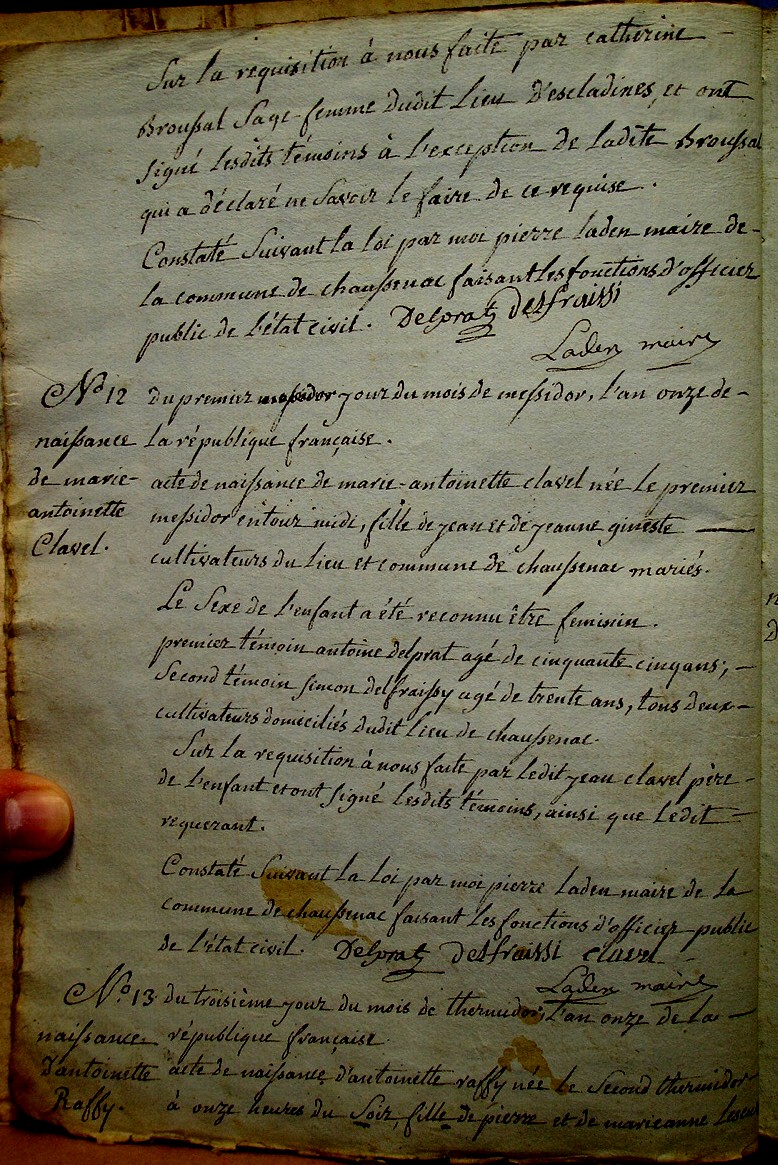 Sur la requisition à nous faite par catherine
Broussal Sage-femme dudit Lieu D'escladines, et ont
signé lesdits témoins à l'exception de ladite Broussal
qui a déclaré ne Savoir le faire de ce requise.
Constaté Suivant la loi par moi pierre laden maire de
la commune de chaussenac faisant les fonctions d'officier
public de l'état civil. Delprat delfraissi
Laden maire
N.o 12 du premier messidor jour du mois de messidor, l'an onze de
naissance la république française.
de marie acte de naissance de marie-antoinette clavel née le premier
antoinette messidor entour midi, fille de jean et de jeanne gineste
Clavel. cultivateurs du lieu et commune de chaussenac mariés.
Le Sexe de l'enfant a été reconnu être feminin.
premier témoin antoine delprat agé de cinquante cinq ans;
Second témoin simon delfraissy agé de trente ans, tous deux
cultivateurs domiciliés dudit lieu de chaussenac.
Sur la requisition à nous faite par ledit jean clavel père
de l'enfant et ont signé lesdits témoins, ainsi que ledit
requerant.
Constaté Suivant la loi par moi pierre laden maire de la
commune de chaussenac faisant les fonctions d'officier public
de l'état civil. Delprat delfraissi clavel
Laden maire
N.o 13 du troisième jour du mois de thermidor, l'an onze de la
naissance république française
d'antoinette acte de naissance d'antoinette raffy née le Second thermidor
Raffy. à onze heures du Soir, fille de pierre et de marieanne